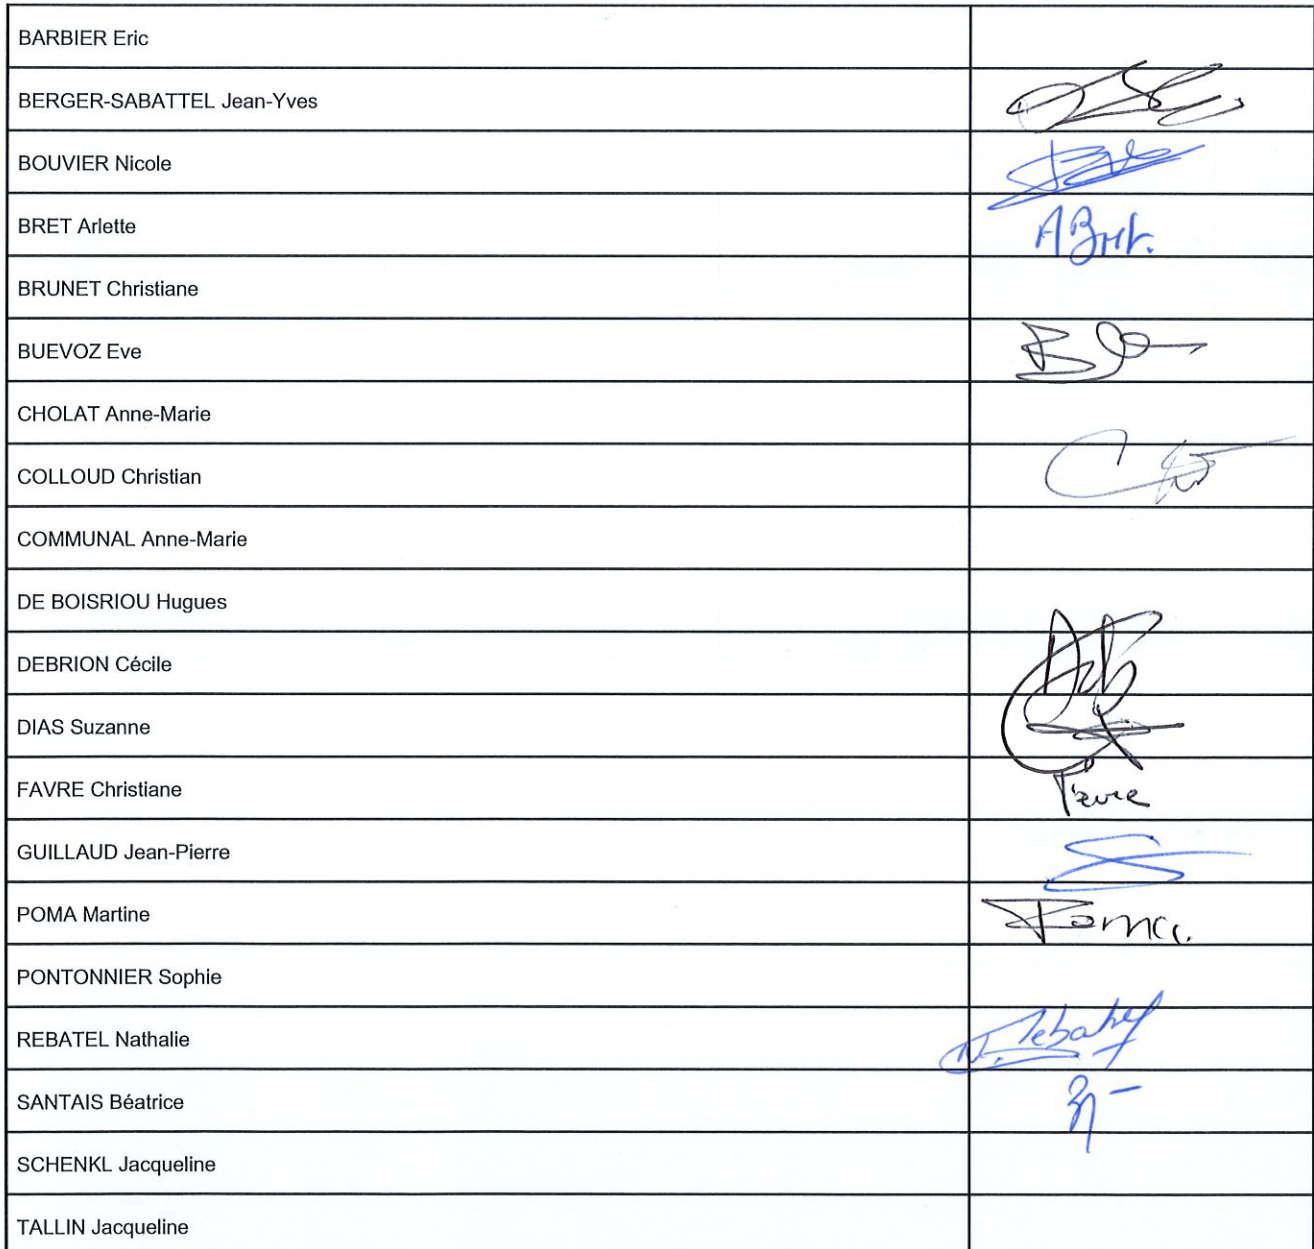 BARBIER Eric
BERGER-SABATTEL Jean-Yves
BOUVIER Nicole
BRET Arlette
A Bret.
BRUNET Christiane
BUEVOZ Eve
CHOLAT Anne-Marie
COLLOUD Christian
COMMUNAL Anne-Marie
DE BOISRIOU Hugues
DEBRION Cécile
DIAS Suzanne
FAVRE Christiane
GUILLAUD Jean-Pierre
POMA Martine
Poma
PONTONNIER Sophie
REBATEL Nathalie
N. Rebatel
SANTAIS Béatrice
SCHENKL Jacqueline
TALLIN Jacqueline